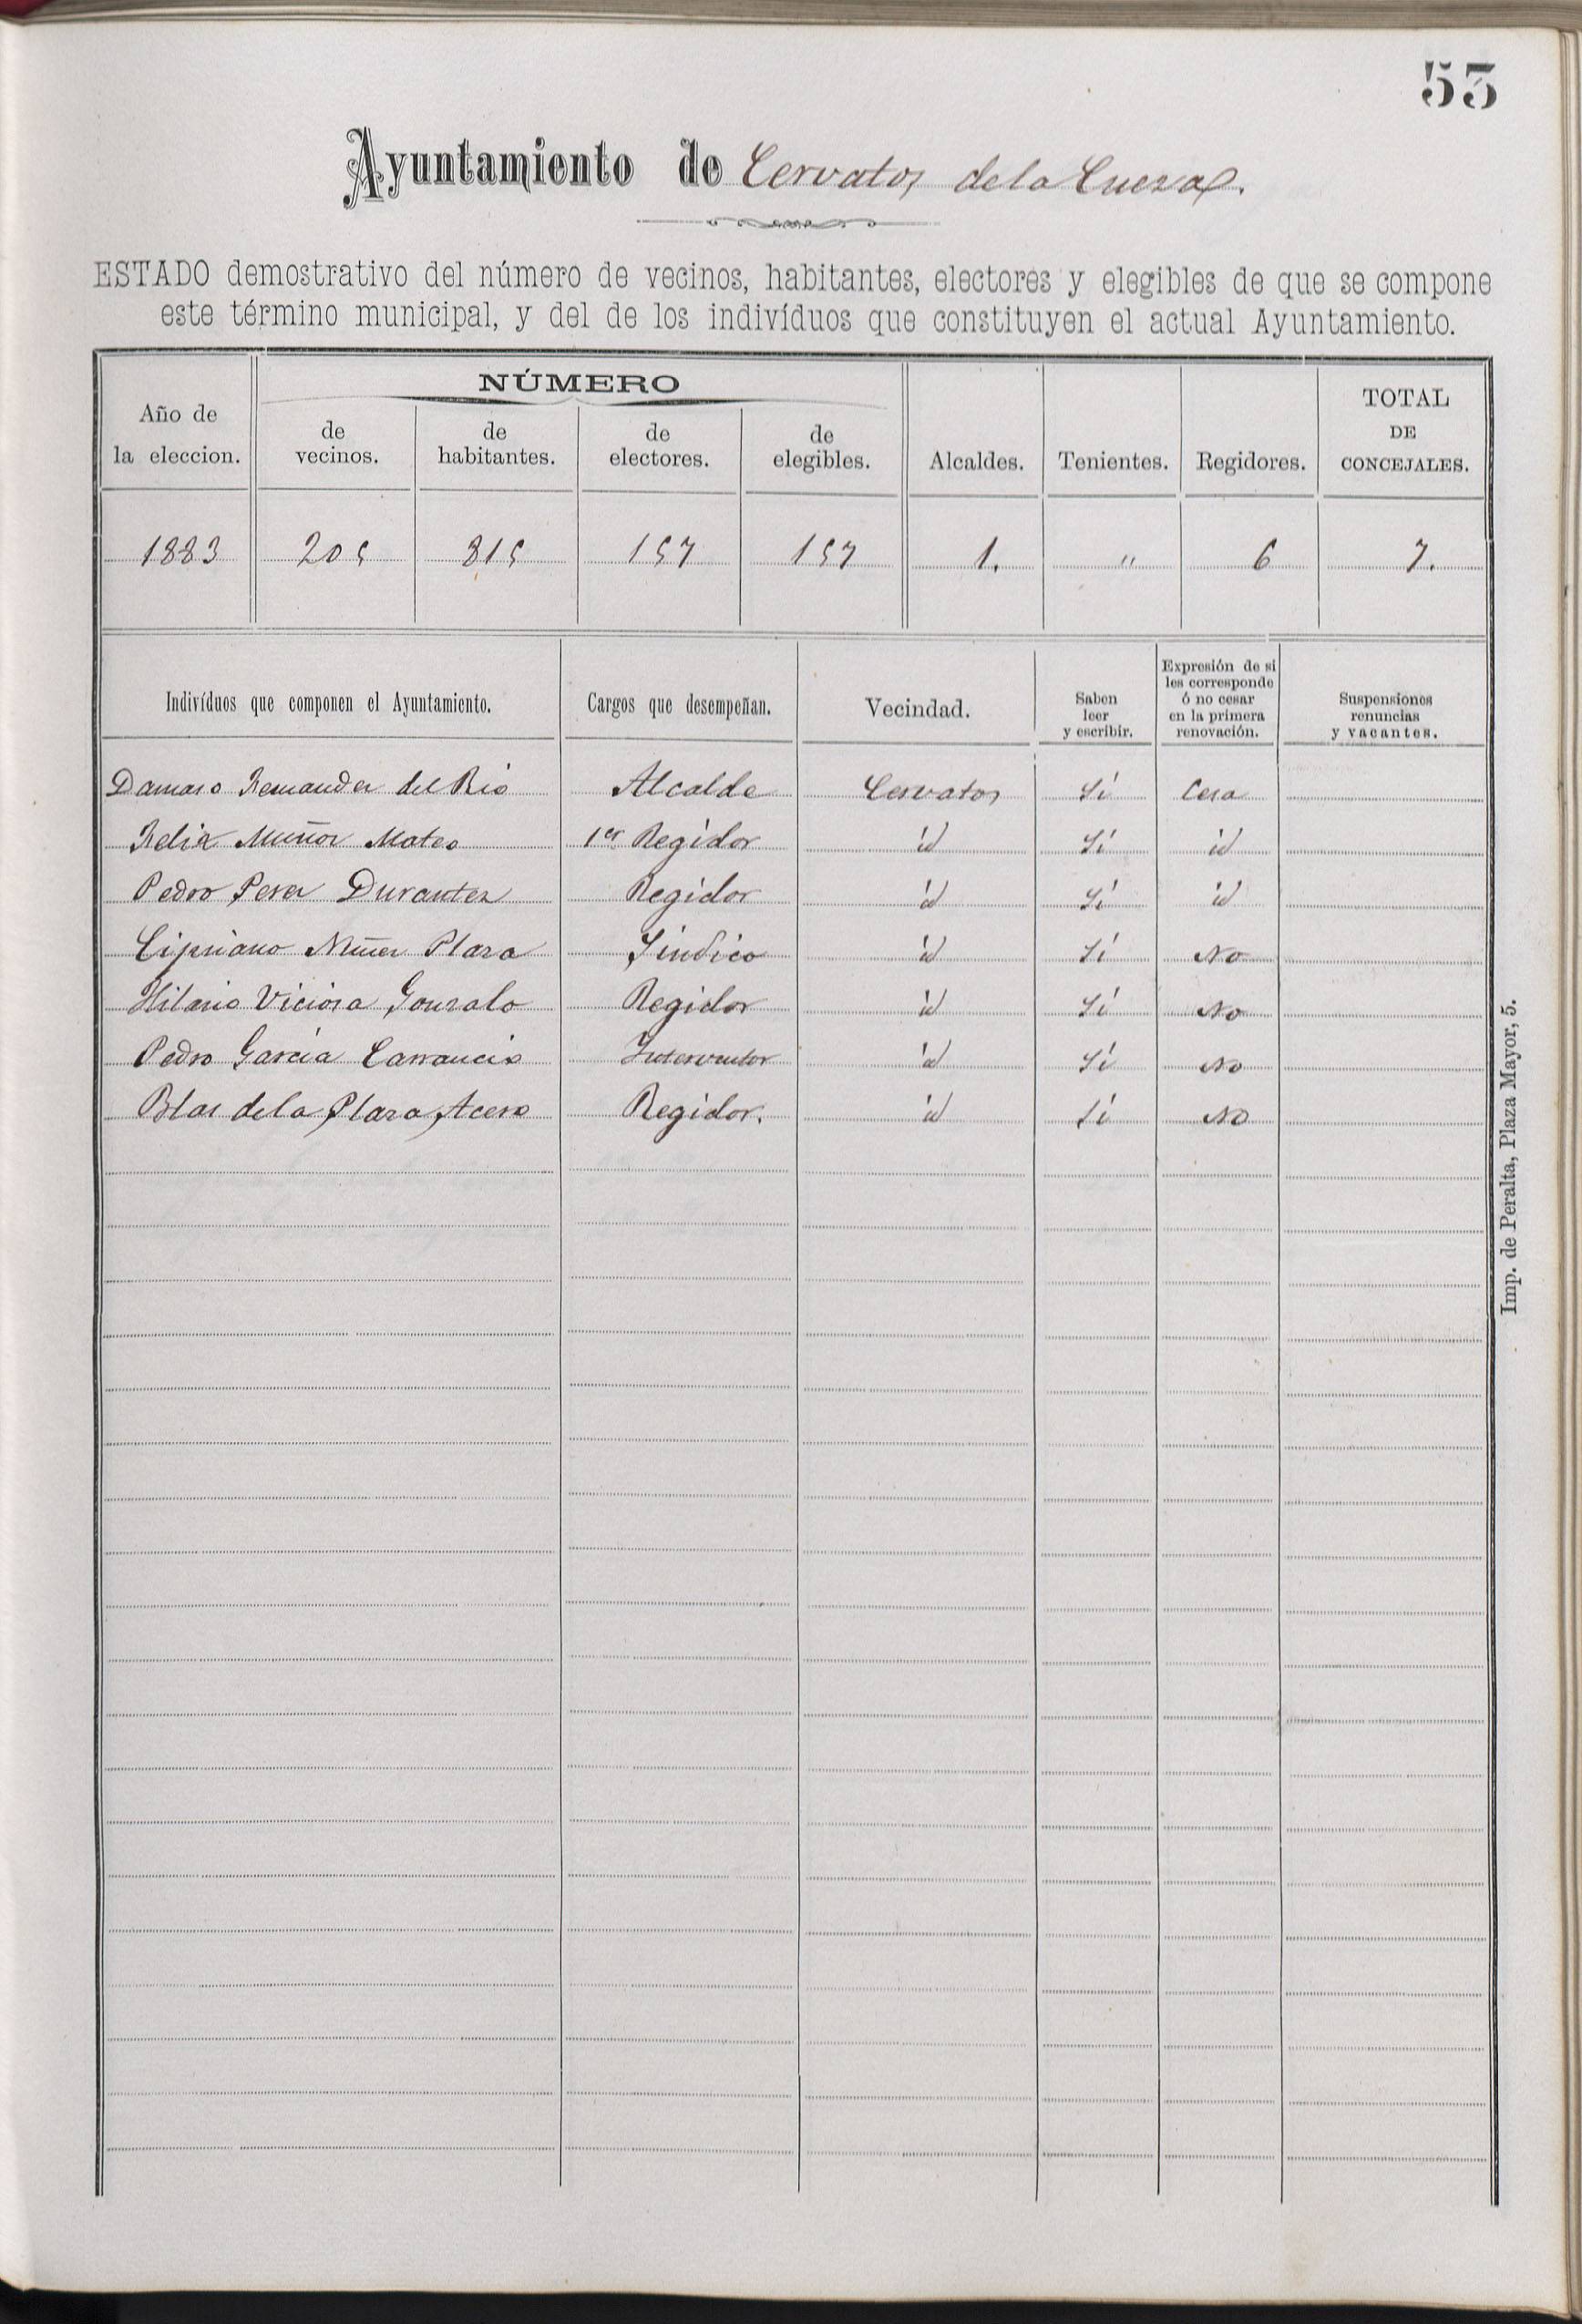 53
Ayuntamiento de Cervatos de la Cueza.
ESTADO demostrativo del número de vecinos, habitantes, electores y elegibles de que se compone
este término municipal, y del de los indivíduos que constituyen el actual Ayuntamiento.
Año de la eleccion. NÚMERO de vecinos. de habitantes. de electores. de elegibles. Alcaldes. Tenientes. Regidores. TOTAL DE CONCEJALES.
1883 205 815 157 157 1. " 6 7.
Indivíduos que componen el Ayuntamiento. Cargos que desempeñan. Vecindad. Saben leer y escribir. Expresión de si les corresponde ó no cesar en la primera renovación. Suspensiones renuncias y vacantes.
Damaso Fernandez del Rio Alcalde Cervatos Sí Cesa
Felix Muñoz Mateo 1er Regidor id Sí id
Pedro Perez Durantez Regidor id Sí id
Cipriano Nuñez Plaza Síndico id Sí No
Hilario Viciosa Gonzalo Regidor id Sí No
Pedro García Carrancio Interventor id Sí No
Blas de la Plaza Acero Regidor. id Sí No
Imp. de Peralta, Plaza Mayor, 5.